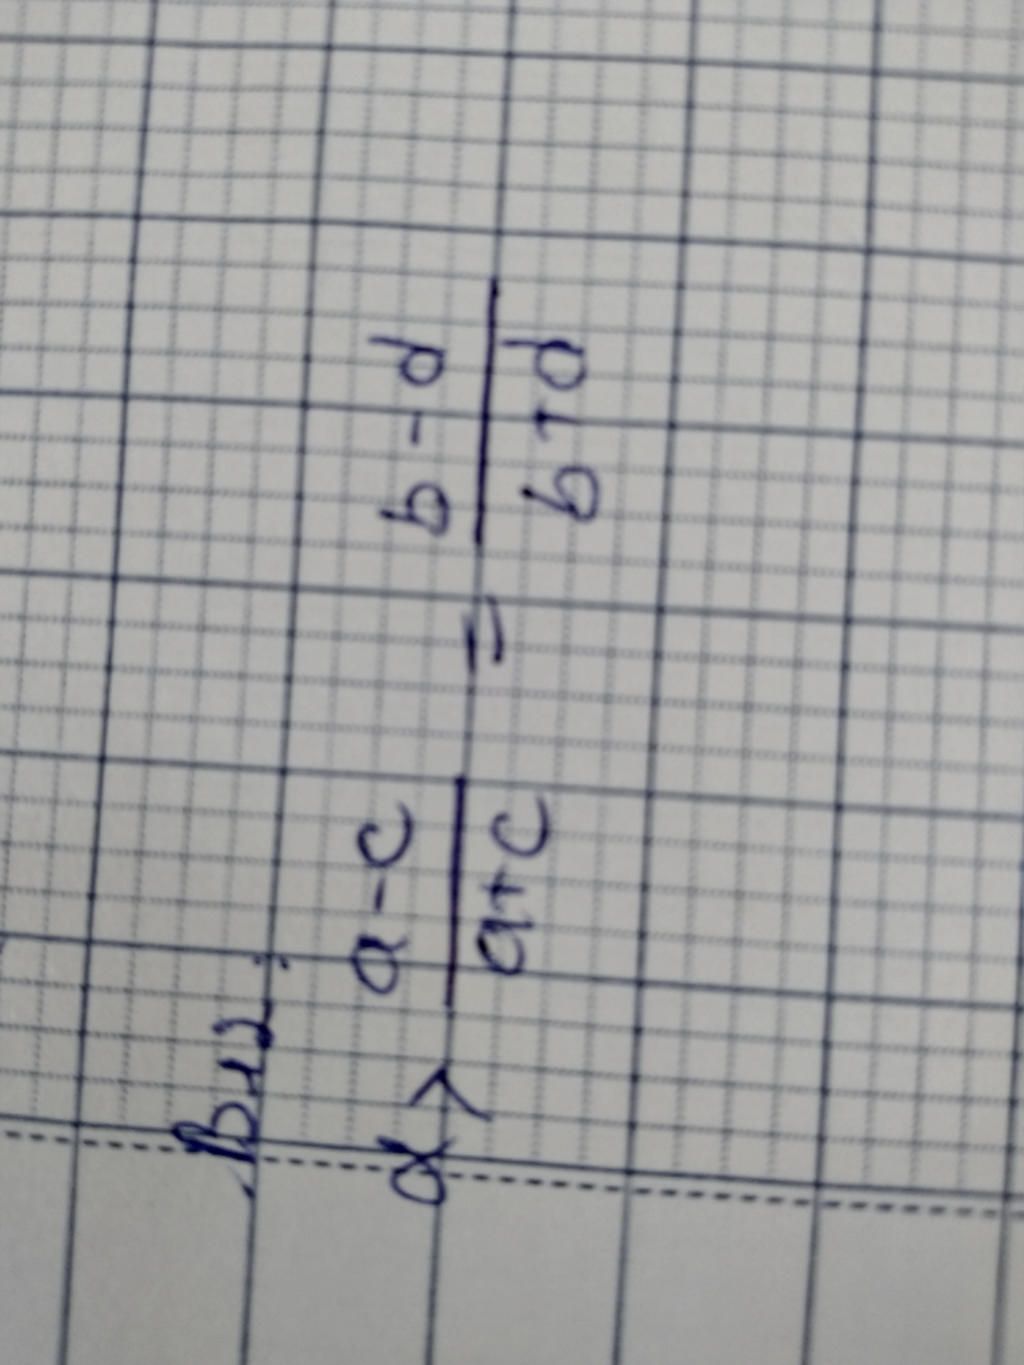 Bài 2:
a> a-c/a+c = b-d/b+d